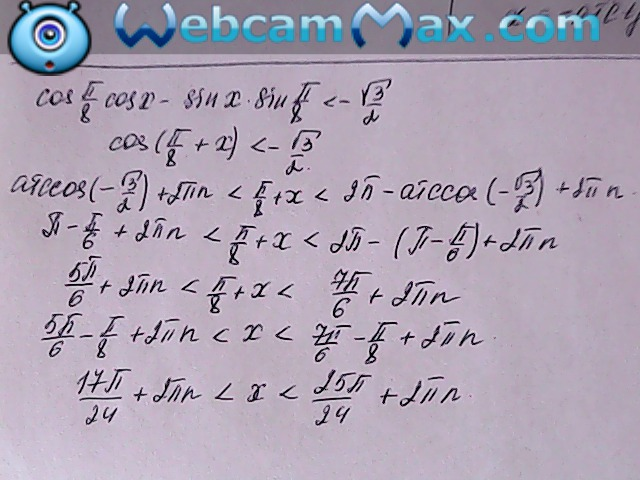 WebcamMax.com
cos π/8 cosx - sin x · sin π/8 < - √3/2
cos(π/8 + x) < - √3/2
arccos(- √3/2) + 2πn < π/8 + x < 2π - arccos(- √3/2) + 2πn
π - π/6 + 2πn < π/8 + x < 2π - (π - π/6) + 2πn
5π/6 + 2πn < π/8 + x < 7π/6 + 2πn
5π/6 - π/8 + 2πn < x < 7π/6 - π/8 + 2πn
17π/24 + 2πn < x < 25π/24 + 2πn